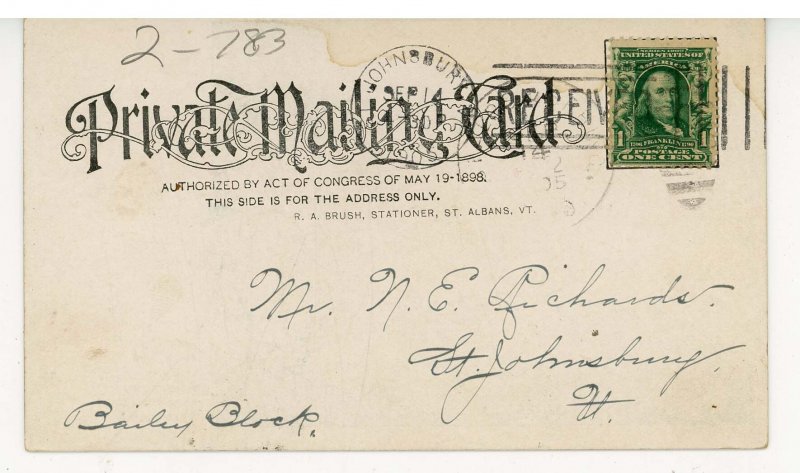 2-783
JOHNSBURY
SEP 14
RECEIVED
SERIES 1902
UNITED STATES OF
AMERICA
1 FRANKLIN 1
POSTAGE
ONE CENT
Private Mailing Card
AUTHORIZED BY ACT OF CONGRESS OF MAY 19-1898.
THIS SIDE IS FOR THE ADDRESS ONLY.
R. A. BRUSH, STATIONER, ST. ALBANS, VT.
Mr. N. E. Richards.
St. Johnsbury,
Vt.
Bailey Block.